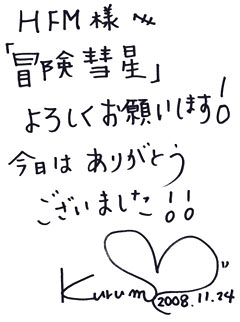 HFM様
「冒険彗星」
よろしくお願いします!!
今日は ありがとう
ございました!!
Kurumi
2008.11.24